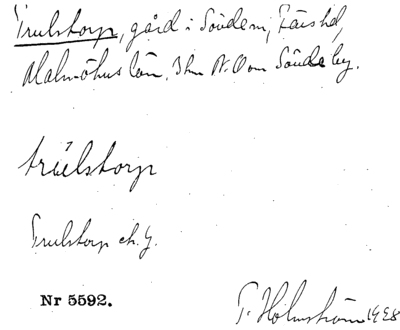 Trulstorp, gård i Södem, Färs hd,
Malmöhus län. 3 km N.O om Söude by.
trülstorp
Trulstorp ch. G.
Nr 5592.
T. Holmström 1928